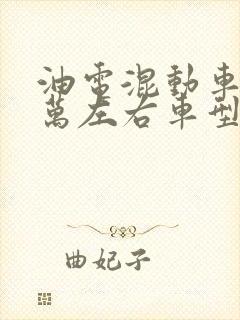 油電混動車
萬左右車型
曲妃子